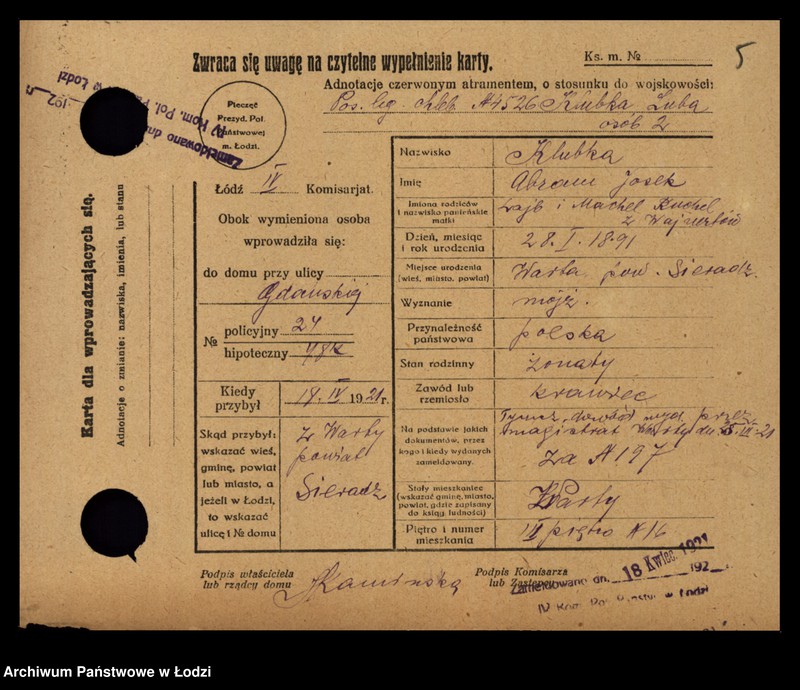 Zwraca się uwagę na czytelne wypełnienie karty.
Ks. m. №
5
Adnotacje czerwonym atramentem, o stosunku do wojskowości:
Pos. leg. chleb. N 4526 Klubka Luba
osób 2
Pieczęć
Prezyd. Pol.
Państwowej
m. Łodzi.
Zameldowano dn.
IV Kom. Pol. w Łodzi
192
Karta dla wprowadzających się.
Adnotacje o zmianie: nazwiska, imienia, lub stanu
Łódź IV Komisarjat.
Obok wymieniona osoba
wprowadziła się:
do domu przy ulicy
Gdańskiej
№ policyjny 24
hipoteczny
Kiedy przybył 18. IV 1921 r.
Skąd przybył:
wskazać wieś,
gminę, powiat
lub miasto, a
jeżeli w Łodzi,
to wskazać
ulicę i № domu
z Warty
powiat
Sieradz
Nazwisko Klubka
Imię Abram Josek
Imiona rodziców
i nazwisko panieńskie
matki
Lajb i Machel Ruchel
z Wajnertów
Dzień, miesiąc
i rok urodzenia
28. I. 1891
Miejsce urodzenia
(wieś, miasto, powiat)
Warta pow. Sieradz.
Wyznanie mojż.
Przynależność
państwowa
polska
Stan rodzinny żonaty
Zawód lub
rzemiosło
krawiec
Na podstawie jakich
dokumentów, przez
kogo i kiedy wydanych
zameldowany.
Tymcz. dowód wyd. przez
magistrat Warty dn.
za N 197
Stały mieszkaniec
(wskazać gminę, miasto,
powiat, gdzie zapisany
do ksiąg. ludności)
Warty
Piętro i numer
mieszkania
piętro N 16
Podpis właściciela
lub rządcy domu
Kamińska
Podpis Komisarza
lub Zastępcy
Zameldowano dn. 18 Kwiec. 1921
192
IV Kom. Pol. Państw. w Łodzi
Archiwum Państwowe w Łodzi